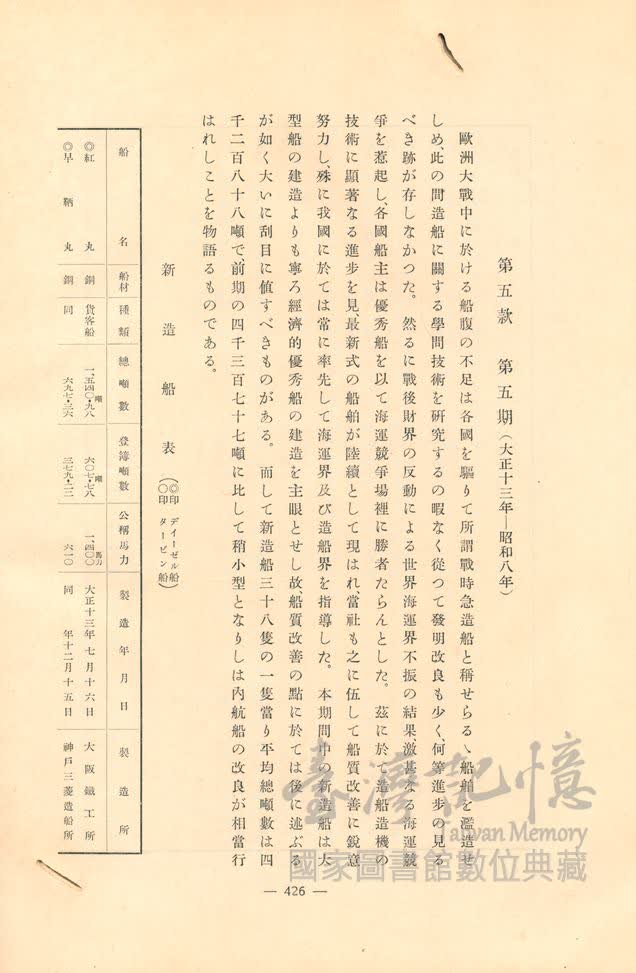 第五款　第五期（大正十三年―昭和八年）
歐洲大戰中に於ける船腹の不足は各國を驅りて所謂戰時急造船と稱せらるゝ船舶を濫造せ
しめ、此の間造船に關する學問技術を硏究するの暇なく從つて發明改良も少く、何等進步の見る
べき跡が存しなかつた。然るに戰後財界の反動による世界海運界不振の結果、激甚なる海運競
爭を惹起し、各國船主は優秀船を以て海運競爭場裡に勝者たらんとした。茲に於て造船造機の
技術に顯著なる進步を見、最新式の船舶が陸續として現はれ、當社も之に伍して船質改善に銳意
努力し、殊に我國に於ては常に率先して海運界及び造船界を指導した。本期間中の新造船は大
型船の建造よりも寧ろ經濟的優秀船の建造を主眼とせし故、船質改善の點に於ては後に述ぶる
が如く大いに刮目に値すべきものがある。而して新造船三十八隻の一隻當り平均總噸數は四
千二百八十八噸で前期の四千三百七十七噸に比して稍小型となりしは內航船の改良が相當行
はれしことを物語るものである。
新造船表（◎印　デイーゼル船
〇印　タービン船）
船名　船材　種類　總噸數　登簿噸數　公稱馬力　製造年月日　製造所
◎紅丸　鋼　貨客船　一、五四〇・九八噸　六〇七・七八噸　一、四〇〇馬力　大正十三年七月十六日　大阪鐵工所
◎早鞆丸　鋼　同　六九七・三六　三七九・二二　六一〇　同　年十二月十五日　神戶三菱造船所
— 426 —
臺灣記憶
Taiwan Memory
國家圖書館數位典藏